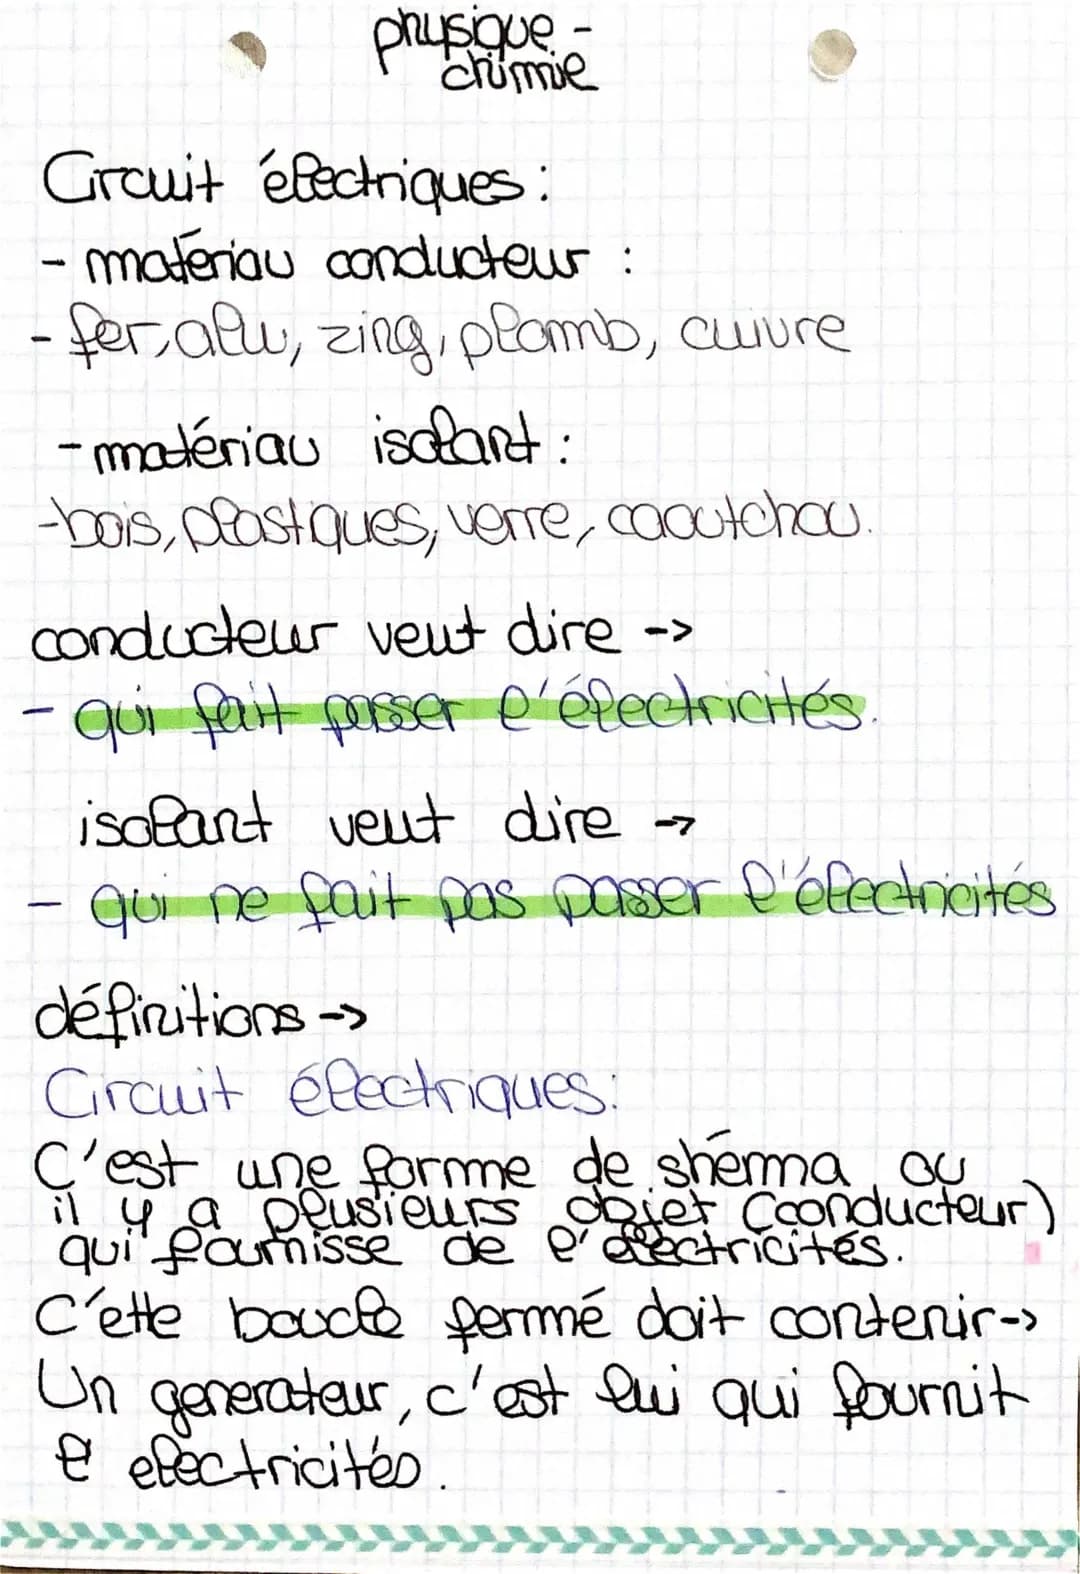 physique -
chimie
Circuit électriques :
- matériau conducteur :
- fer, alu, zing, plomb, cuivre
- matériau isolant :
- bois, plastiques, verre, caoutchou.
conducteur veut dire ->
- qui fait passer l'électricités.
isolant veut dire ->
- qui ne fait pas passer l'électricités
définitions ->
Circuit électriques:
C'est une forme de shéma ou
il y a plusieurs objet (conducteur)
qui fournisse de l'électricités.
C'ette boucle fermé doit contenir->
Un generateur, c'est lui qui fournit
l' electricités.